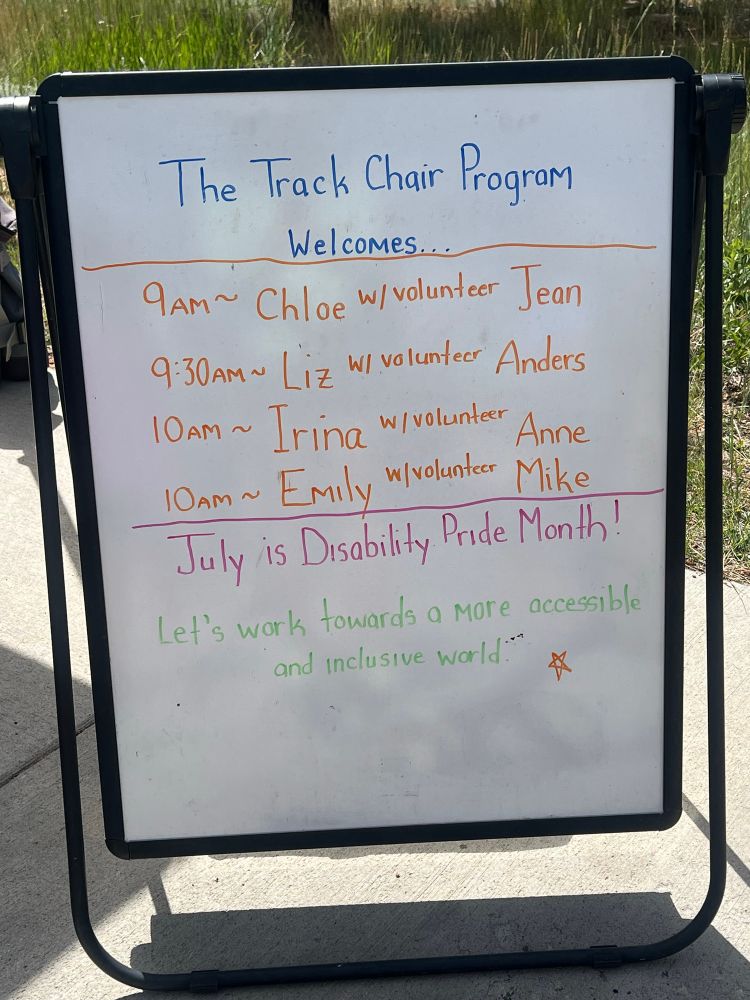 The Track Chair Program
Welcomes...
9AM~ Chloe w/volunteer Jean
9:30AM~ Liz w/volunteer Anders
10AM~ Irina w/volunteer Anne
10AM~ Emily w/volunteer Mike
July is Disability Pride Month!
Let's work towards a more accessible
and inclusive world.